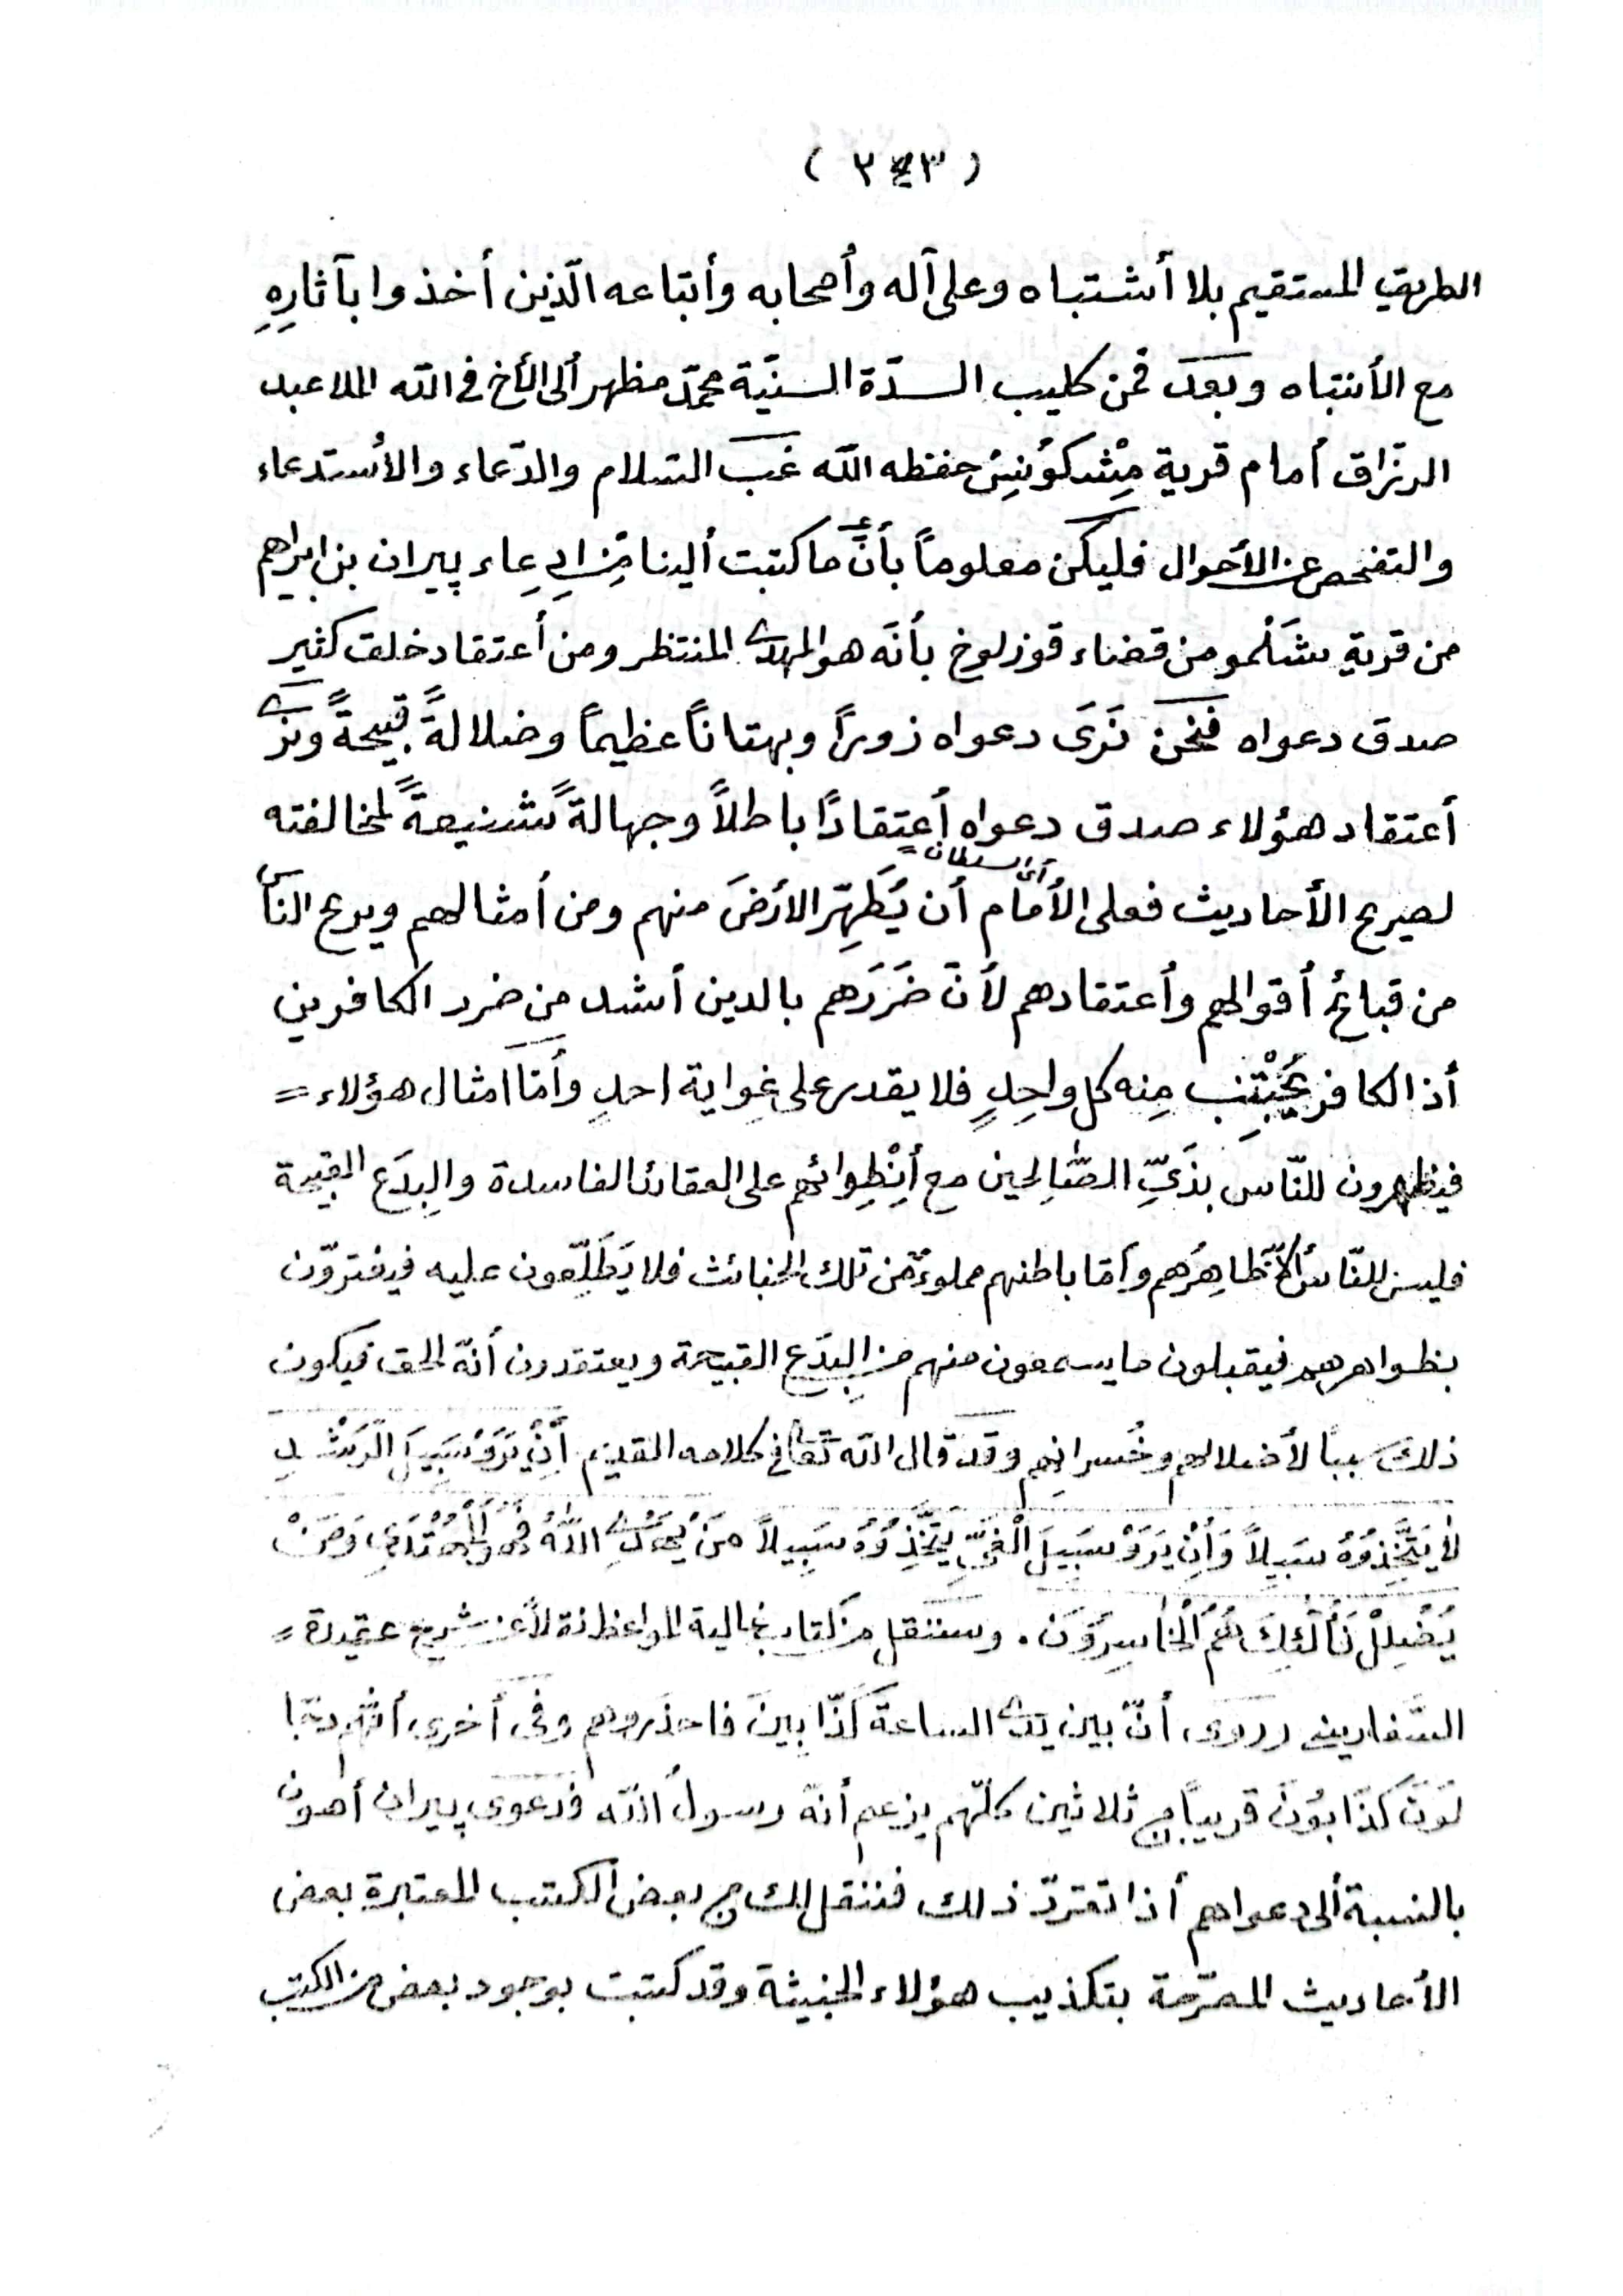 ( ٢٤٣ )
الطريق المستقيم بلا أشتباه وعلى آله وأصحابه وأتباعه الّذين أخذوا بآثارِهِ
مع الأنتباه وبعد فمن كليب السدّة السنيّة محمّد مظهر ألى الأخ فى الله الملا عبد
الرزّاق أمام قرية مِشْكوُنِسْ حفظه الله غبّ السّلام والدّعاء والأستدعاء
والتفحص عن الأحوال فليكن معلوماً بأنّ ما كتبت ألينا مِن إدِعاء پيران بن ابراهيم
من قرية شَلْمو من قضاء قوزلوخ بأنّه هو المهدى المنتظر ومن أعتقاد خلق كثير
صدق دعواه فنحن نَرَى دعواه زوراً وبهتاناً عظيماً وضلالةً قبيحةً ونرى
أعتقاد هؤلاء صدق دعواه أعتقادًا باطلاً وجهالةً شنيعةً لمخالفته
أى السلطان
لصريح الأحاديث فعلى الأمام أن يُطَهِّر الأرضَ منهم ومن أمثالهم ويريح الناس
من قبائح أقوالهم وأعتقادهم لأنّ ضَرَرَهم بالدين أشد من ضرر الكافرين
أذ الكافر يَجْتَنِب مِنه كل واحِدٍ فلا يقدر على غِواية احدٍ وأمّا امثال هؤلاء =
فيظهرون للنّاس بذَىِّ الصّالحين مع أنْطِوائهم على العقائد الفاسدة والبِدَع القبيحة
فليس للنّاس ألاّ ظاهِرُهم وأمّا باطنهم مملوءٌ من تلك الخبائث فلا يَطَّلِعون عليه فيغترّون
بظواهرهم فيقبلون ما يسمعون منهم من البِدَع القبيحة ويعتقدون أنّه الحق فيكون
ذلك سبباً لأضلالهم وخُسرانِهِم وقد قال الله تعالى فى كلامه القديم أِنْ يَرَوْ سَبِيلَ الرّشْدِ
لاٰ يَتَّخِذوُهُ سَبيلاً وَأِنْ يَرَوْ سَبِيلَ الْغَىِّ يَتَّخِذوُهُ سَبِيلاً مَنْ يَهْدِى اللّٰهُ فَهُوَ الْمُهْتَدِى وَمَنْ
يُضْلِلْ فَأُلٰئِكَ هُمُ الْخٰاسِرُونَ . وسننقل من كتاب غالية المواعظ نقلاً عن شرح عقيدة =
السّفارينى رروى أنّ بين يدى الساعة كذّابينَ فاحذروهم وفى أخرى أنّهم دجّا
لوُنَ كذّابوُنَ قريباً من ثلاثين كلّهم يزعم أنّه رسولُ الله فدعوى پيران أهون
بالنسبة ألى دعواهم أذا تقرّر ذلك فننقل لك من بعض الكتب المعتبرة بعض
الأحاديث المصرّحة بتكذيب هؤلاء الخبيثة وقد كتبت بوجود بعض من الكتب